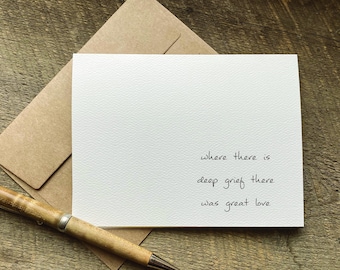 where there is
deep grief there
was great love